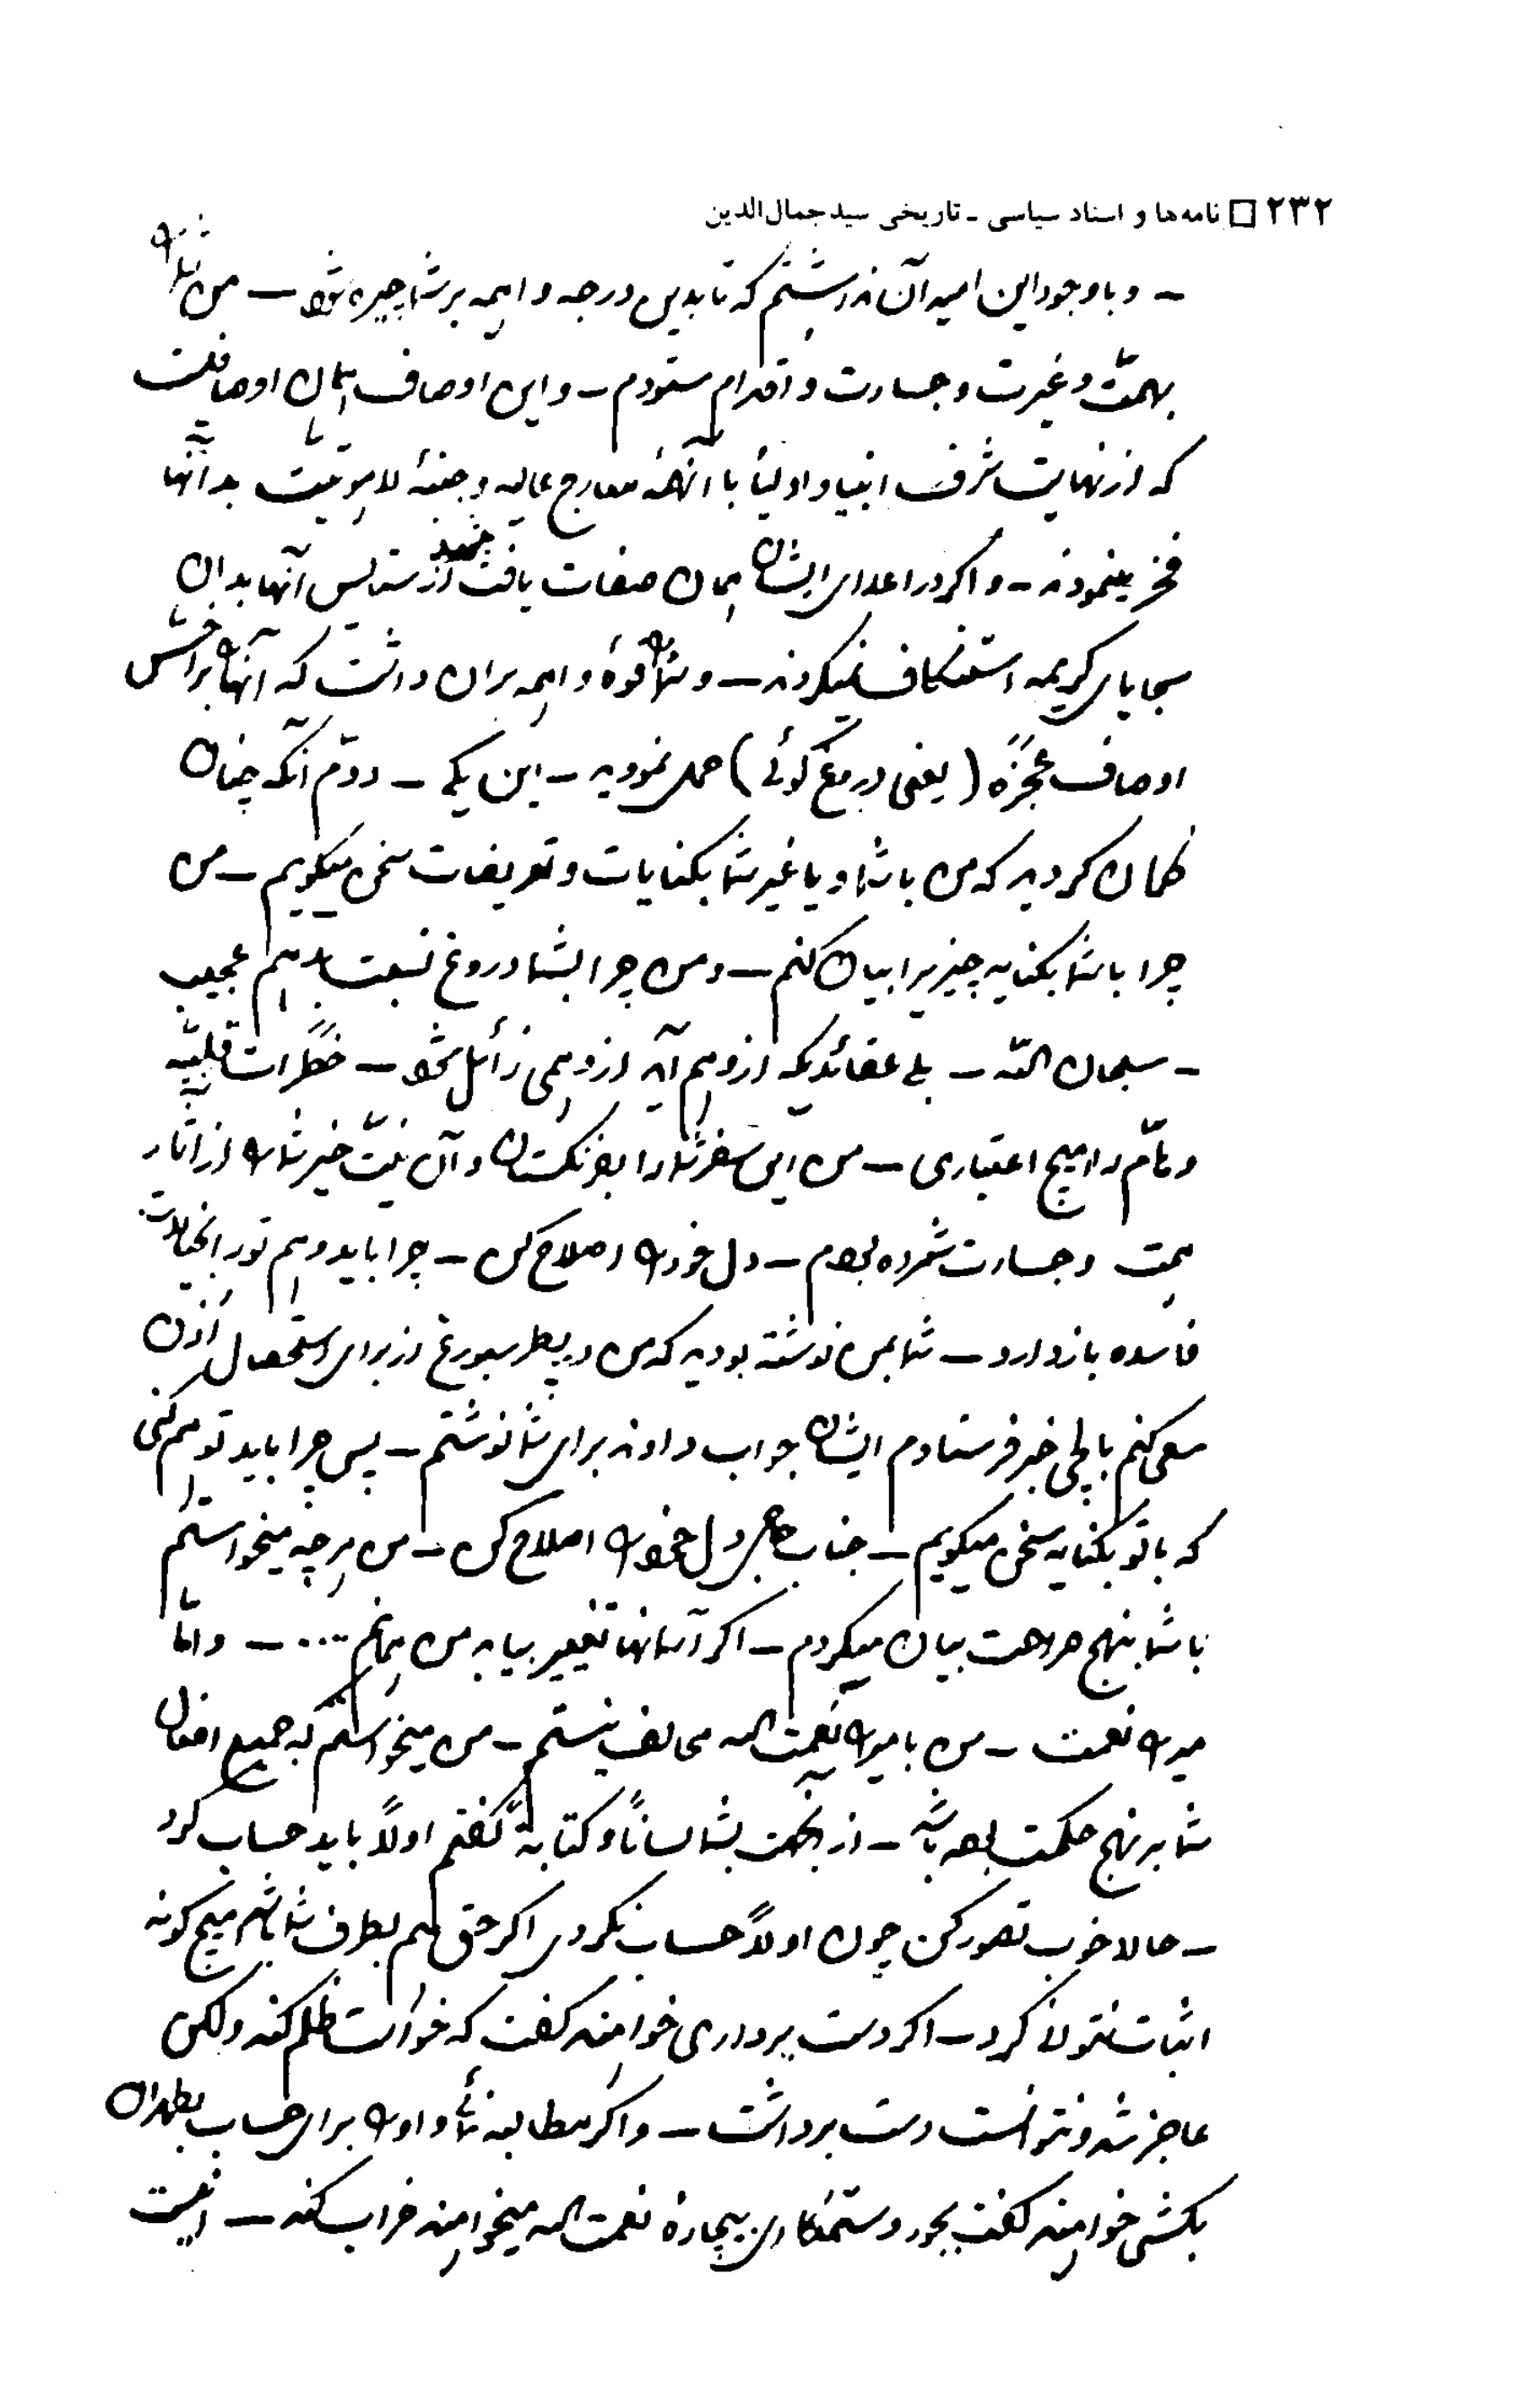 ۲۳۲ □ نامه‌ها و اسناد سیاسی - تاریخی سید جمال‌الدین
– و با وجود این امید آن نداشتم که تا بدین درجه واهمه بر شما چیره شود – من شما را
بهمّت و غیرت و جسارت و اقدام ستودم – و این اوصاف همان اوصافیست
که از نهایت شرف انبیا و اولیا با آنهمه معارج عالیه و جنبهٔ لاهوتیت بدآنها
فخر مینمودند – و اگر در اعدای ایشان همان صفات یافت میشد از ستایش آنها بدان
سجایای کریمه استنکاف نمیکردند – و شما را قوهٔ واهمه بران داشت که آنها را بر
اوصاف عَجَزَه (یعنی دروغ گوئی) حمل نمودید – این یکی – دوّم آنکه چنان
گمان کردید که من با شما و یا غیر شما بکنایات و تعریضات سخن میگویم – من
چرا با شما بکنایه چیزیرا بیان کنم – و من چرا بشما دروغ نسبت بدهم عجیب
– سبحان اللّه – بلی عقائدیکه از وهم آید از وهمی زائل شود – خَطَرات قلبیّه
و تمام را هیچ اعتباری – من این سفر شما را بفرنگستان و آن نیّت خیر شما را از آثار
همت و جسارت شمرده بودم – دل خود را اصلاح کن – چرا باید وهم تو را بخیالات
فاسده بازدارد – شما بمن نوشته بودید که من در پطرسبورغ از برای استحصال اذن
سعی کنم بایلچی خبر فرستادم ایشان جواب دادند برای شما نوشتم – پس چرا باید توهم کنی
که با تو بکنایه سخن میگویم – جناب حاجی دل خود را اصلاح کن – من هرچه میخواستم
با شما بنهج صراحت بیان میکردم – اگر آسمانها تغییر بیابد من همانم ... – و امّا
میرزا نعمت – من با میرزا نعمت الله مخالف نیستم – من میخواستم که جمیع افعال
شما بر نهج حکمت بوده باشد – از آنجهت بشما لساناً و کتابةً گفتم اولاً باید حساب کرد
– حالا خوب تصور کن چون اولاً حساب نکردی اگر حق هم بطرف شما باشد هیچ گونه
اثبات نتوان کرد – اگر دست برداری خواهند گفت که خواست ظلم کند ولکن
عاجز شد و نتوانست دست برداشت – و اگر مطالبه نمائی و او را برای حساب بطهران
بکشی خواهند گفت بجور و ستمکاری بیچاره نعمت الله میخواهند خراب کند – اینست